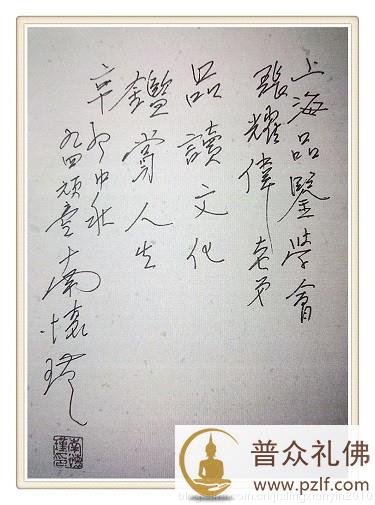 上海品鑒學會
張耀偉老弟
品讀文化
鑑賞人生
辛卯中秋
九四頑童南懷瑾
南懷瑾印
普众礼佛
www.pzlf.com